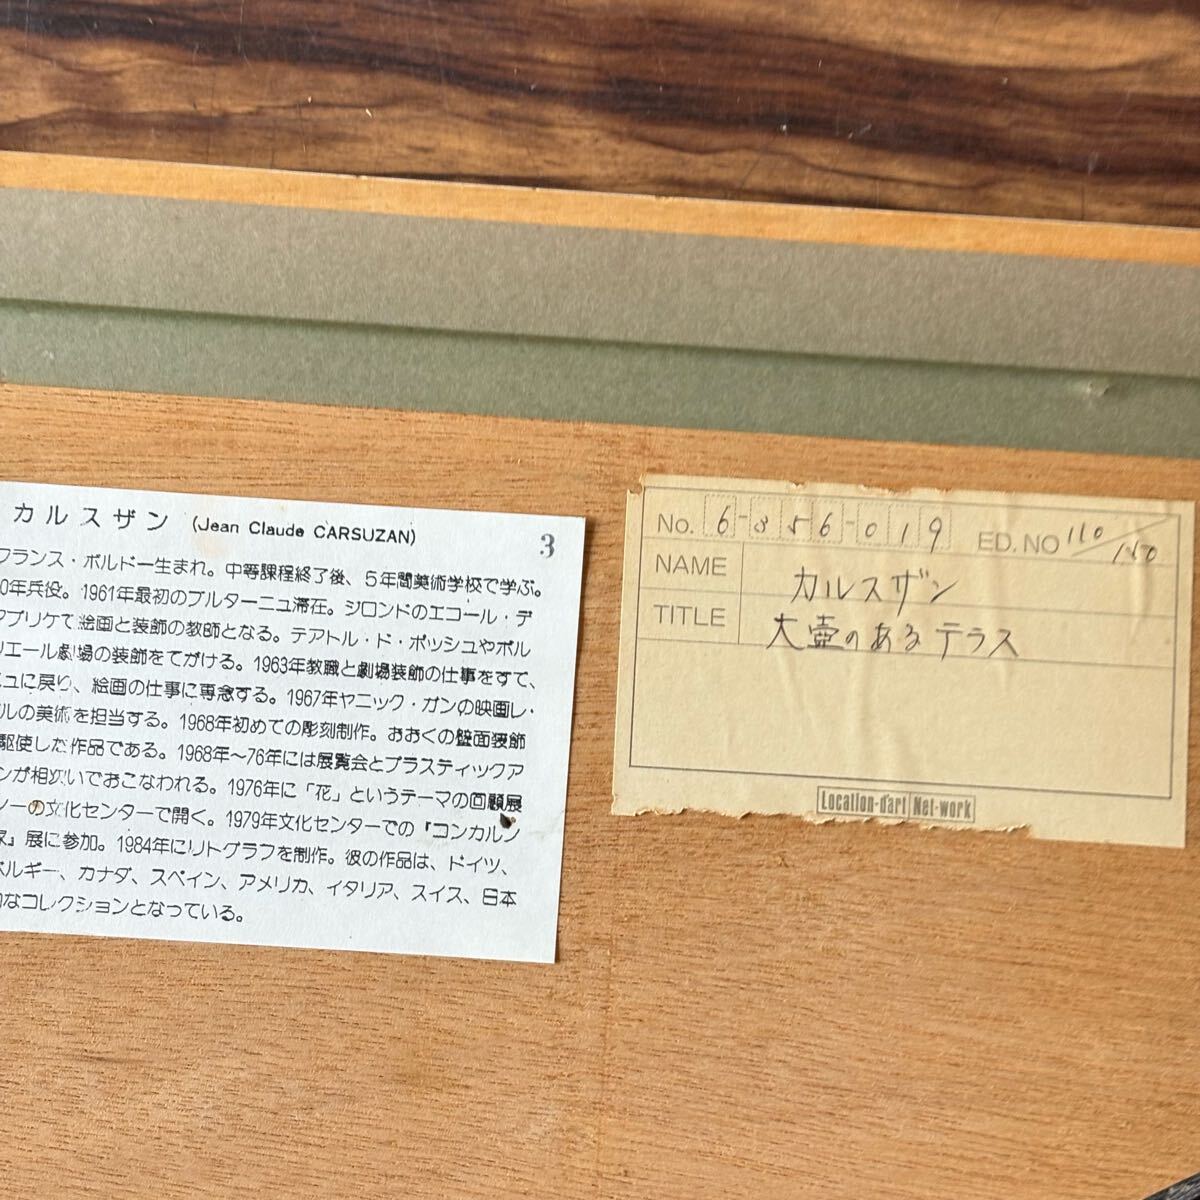 カルスザン (Jean Claude CARSUZAN) 3
フランス・ボルドー生まれ。中等課程終了後、5年間美術学校で学ぶ。
0年兵役。1961年最初のブルターニュ滞在。ジロンドのエコール・デ
アプリケで絵画と装飾の教師となる。テアトル・ド・ポッシュやボル
リエール劇場の装飾をてがける。1963年教職と劇場装飾の仕事をすて、
ニュに戻り、絵画の仕事に専念する。1967年ヤニック・ガンの映画レ・
ルの美術を担当する。1968年初めての彫刻制作。おおくの壁面装飾
駆使した作品である。1968年〜76年には展覧会とプラスティックア
ンが相次いでおこなわれる。1976年に「花」というテーマの回顧展
ノーの文化センターで開く。1979年文化センターでの『コンカルノ
家』展に参加。1984年にリトグラフを制作。彼の作品は、ドイツ、
ベルギー、カナダ、スペイン、アメリカ、イタリア、スイス、日本
的なコレクションとなっている。
No. 6-356-019 ED. NO 110/150
NAME カルスザン
TITLE 大壺のあるテラス
Location-d'art Net-work